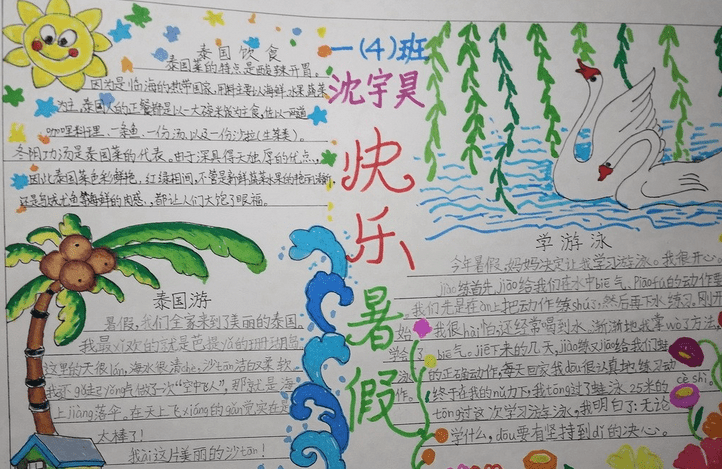 泰国饮食
泰国菜的特点是酸辣开胃。
因为是临海的热带国家,用料主要以海鲜水果蔬菜
为主,泰国人的正餐都是以一大碗米饭为主食,佐以一两道
咖喱料理、一条鱼、一份汤,以及一份沙拉(生菜类)。
冬阴功汤是泰国菜的代表。由于深具得天独厚的优点,
因此泰国菜色彩鲜艳,红绿相间,不管是新鲜蔬菜水果的艳
还是
海鲜的肉感,都让人们大饱了眼福。
一(4)班
沈宇昊
快乐暑假
泰国游
暑假,我们全家来到了美丽的泰国。
我最xǐ欢的就是芭提yǎ的珊瑚岛
这里的天很lán,海水很清chè,沙tān洁白柔软
我还
做了一次“空中飞人”,那就是海
上jiàng落伞,在天上飞xiáng的gǎn觉实在是
太棒了!
我ài这片美丽的沙tān!
学游泳
今年暑假,妈妈决定让我学习游泳。我很开心。
jiāo练首先jiāo给我们在水中biē气、Piāofú的动作要
我们先是在àn上把动作练shú,然后再下水练习。刚开
始,我很hài怕,还经常喝到水,渐渐地我掌wò了方法,
学会了biē气。jiē下来的几天,jiāo练又jiāo给我们蛙
泳的正确动作,每天回家我dōu很认真地练习动
作。终于在我的nǔ力下,我tōng过了蛙泳25米的
cè shì。
tōng过这次学习游泳,我明白了:无论
学什么,dōu要有坚持到dǐ的决心。